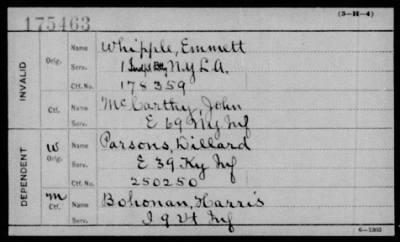 175463
(3-H-4)
INVALID
Orig.
Name Whipple, Emmett
Serv. 1 Indpt Bty N.Y. L.A.
Ctf. No. 178359
Ctf.
Name McCarthy, John
Serv. E 69 Ny Inf
DEPENDENT
W
Orig.
Name Parsons, Dillard
Serv. E 39 Ky Inf
Ctf. No. 250250
M
Ctf.
Name Bohonan, Harris
Serv. I 9 Vt Inf